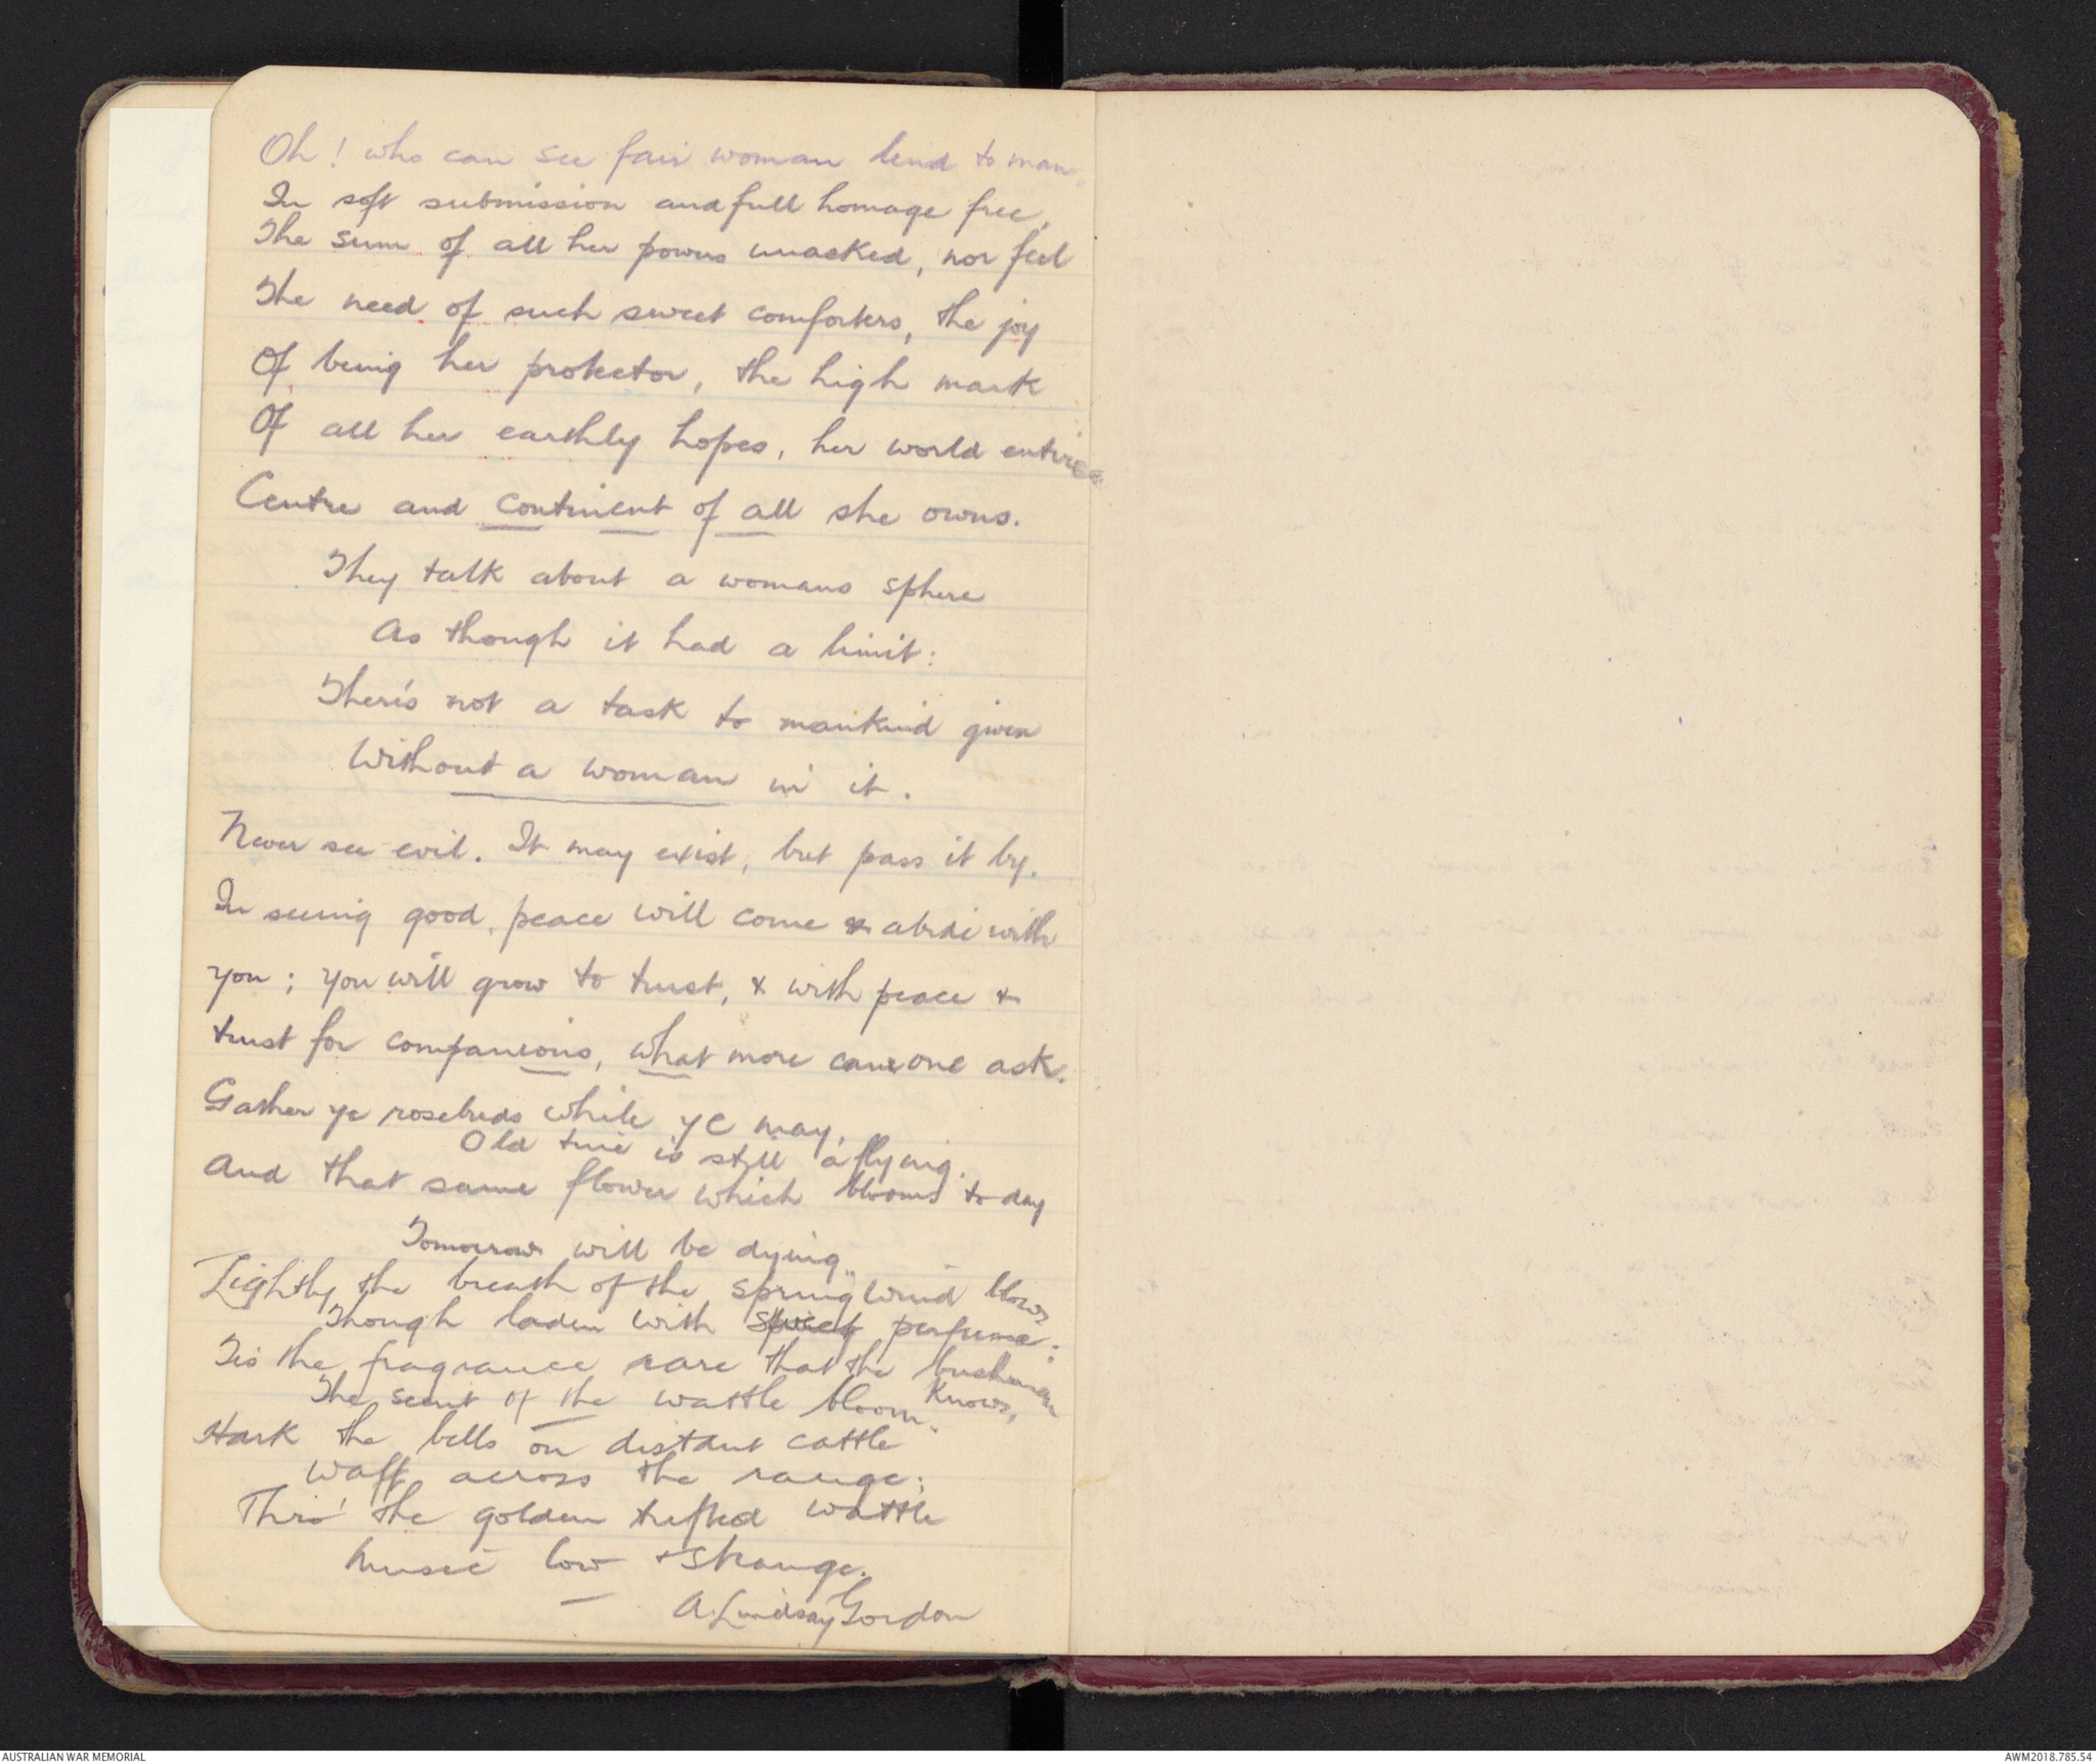 Oh! who can see fair woman lend to man,
In soft submission and full homage free,
The sum of all her powers unasked, nor feel
The need of such sweet comforters, the joy
Of being her protector, the high mark
Of all her earthly hopes, her world entire
Centre and continent of all she owns.
They talk about a womans sphere
As though it had a limit:
There's not a task to mankind given
Without a woman in it.
Never see evil. It may exist, but pass it by.
In seeing good, peace will come & abide with
you; you will grow to trust, & with peace &
trust for companions, what more can one ask.
Gather ye rosebuds while ye may,
Old time is still a flying.
And that same flower which blooms to-day
Tomorrow will be dying..
Lightly the breath of the spring wind blows
Though laden with perfume:
Tis the fragrance rare that the bushman
knows,
The scent of the wattle bloom.
Hark the bells on distant cattle
Waft across the range;
Thro' the golden tufted wattle
Music low & strange.
A. Lindsay Gordon
AUSTRALIAN WAR MEMORIAL
AWM2018.785.54